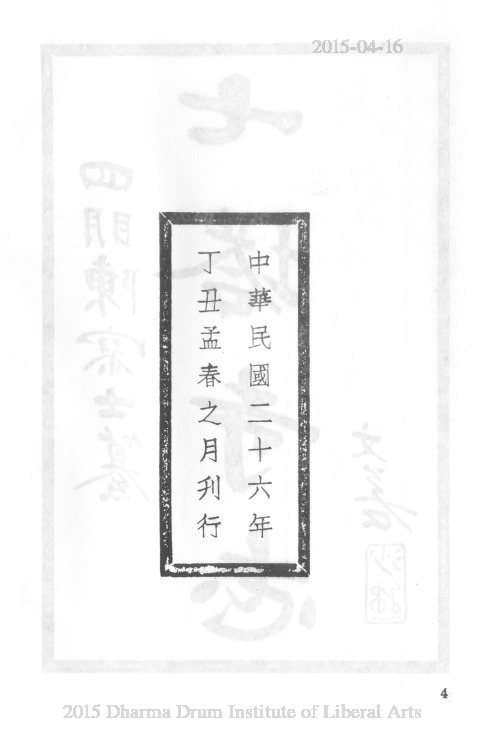 2015-04-16
中華民國二十六年
丁丑孟春之月刋行
4
2015 Dharma Drum Institute of Liberal Arts